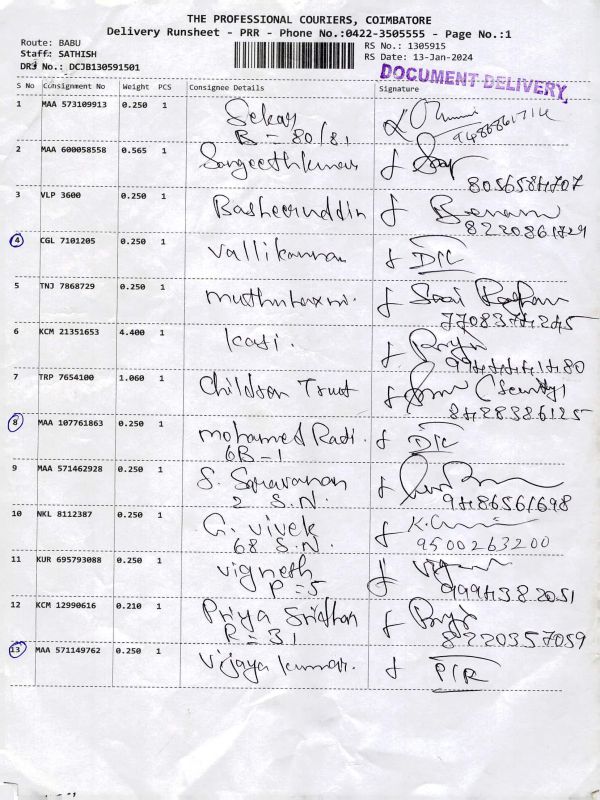 THE PROFESSIONAL COURIERS, COIMBATORE
Delivery Runsheet - PRR - Phone No.:0422-3505555 - Page No.:1
Route: BABU
Staff: SATHISH
DRS No.: DCJB130591501
RS No.: 1305915
RS Date: 13-Jan-2024
DOCUMENT DELIVERY
S No Consignment No Weight PCS Consignee Details Signature
1 MAA 573109913 0.250 1 Sekar
B = 80/81 9486861714
2 MAA 600058558 0.565 1 Sangeethkumar
8056584707
3 VLP 3600 0.250 1 Basheeruddin
8220861729
4 CGL 7101205 0.250 1 Vallikannan D/L
5 TNJ 7868729 0.250 1 muthulaxmi.
7708374245
6 KCM 21351653 4.400 1 Kasi. Priya
9944441480
7 TRP 7654100 1.060 1 Children Trust (Security)
8428386125
8 MAA 107761863 0.250 1 mohamed Rafi. D/L
6B-1
9 MAA 571462928 0.250 1 S. Saravanan
2 S.N. 9486561698
10 NKL 8112387 0.250 1 G. Vivek
68 S.N. 9500263200
11 KUR 695793088 0.250 1 Vignesh
P = 5 9994382051
12 KCM 12990616 0.210 1 Priya Sridhar
R = 31 8220357059
13 MAA 571149762 0.250 1 Vijaya kumar. P/R